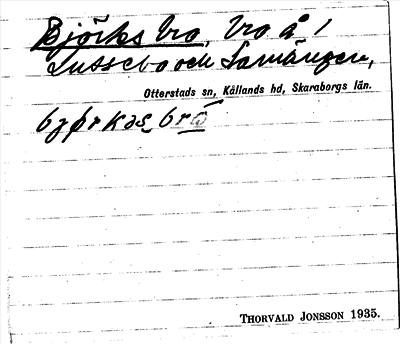 Björks bro, bro å 1
Lussebo och Samängen,
Otterstads sn, Kållands hd, Skaraborgs län.
THORVALD JONSSON 1935.